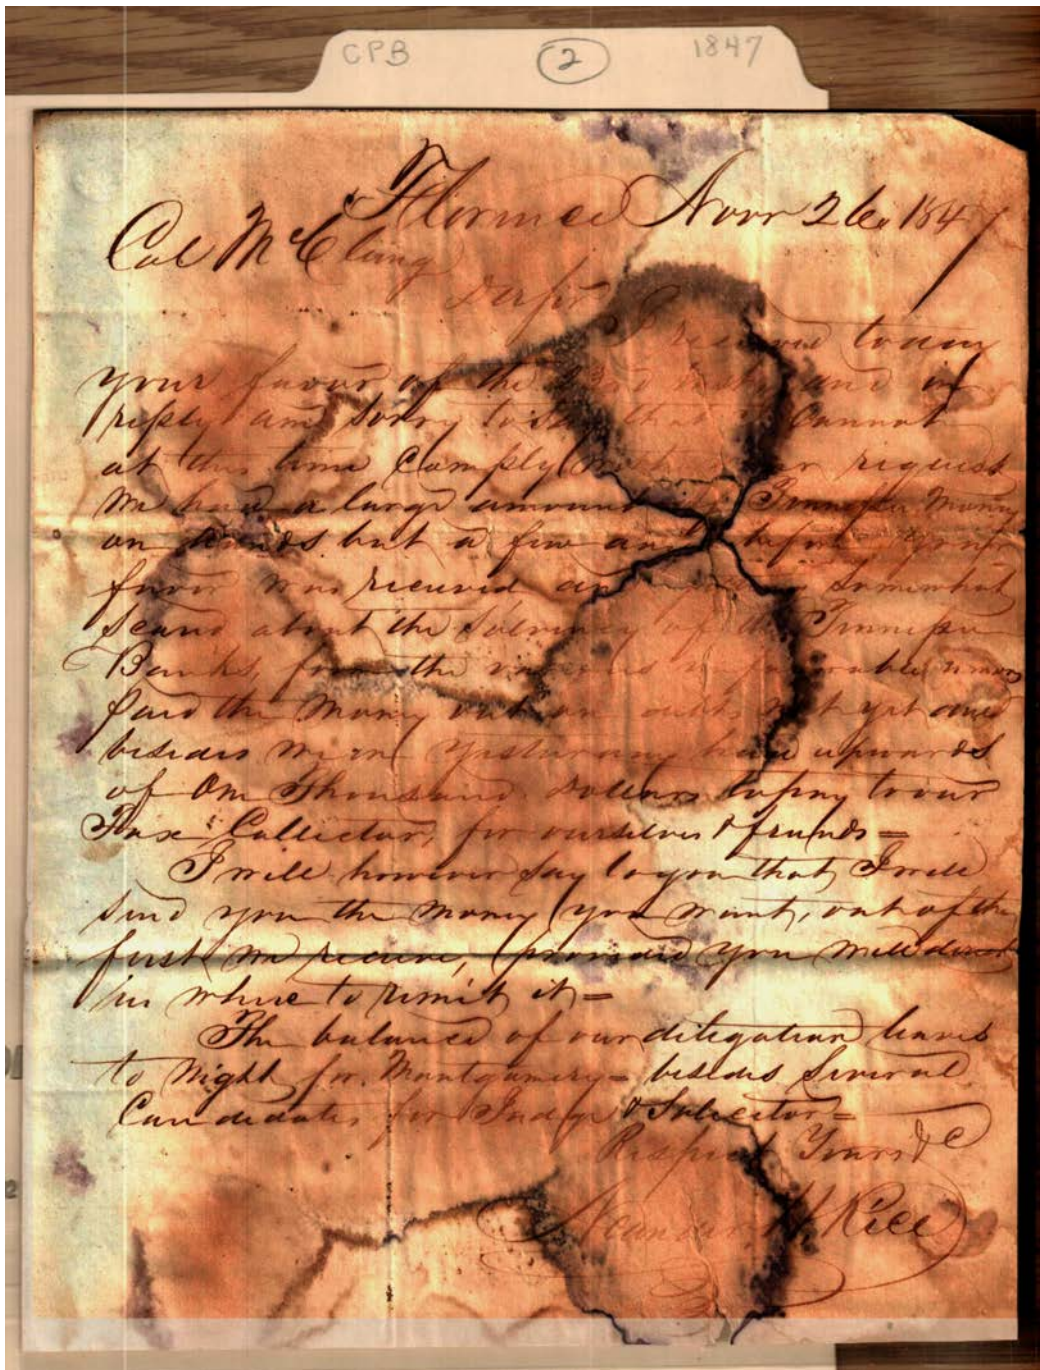 CPB 2 1847
Florence Novr 26 1847
Col McClung
Dr Sir
I received today
your favor of the and in
reply am sorry to that Cannot
at this time Comply request
we had a large amount Tennessee money
on hands but a few before your
favor was received and somewhat
Scared about the Solvency of the Tennessee
Banks, from the unfavorable
paid the money out on not yet due
besides we on yesterday had upwards
of One Thousand Dollars to pay to our
Tax Collector, for ourselves & friends =
I will however say to you that I will
send you the money you want, out of the
first we receive, (provided you will direct
us where to remit it =
The balance of our delegation leaves
to Night for Montgomery = besides Several
Candidates for Judge & Solicitor =
Respect Yours &C
Rice